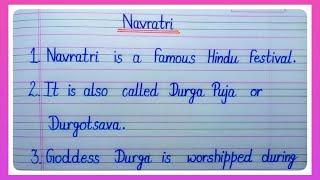 Navratri
1. Navratri is a famous Hindu festival.
2. It is also called Durga Puja or
Durgotsava.
3. Goddess Durga is worshipped during